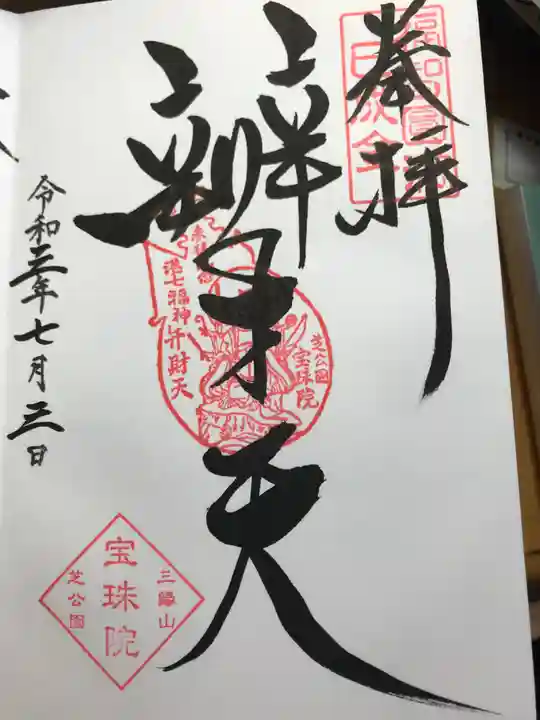 奉拝
辨才天
港七福神弁財天
芝公園
宝珠院
令和三年七月三日
三縁山
宝珠院
芝公園